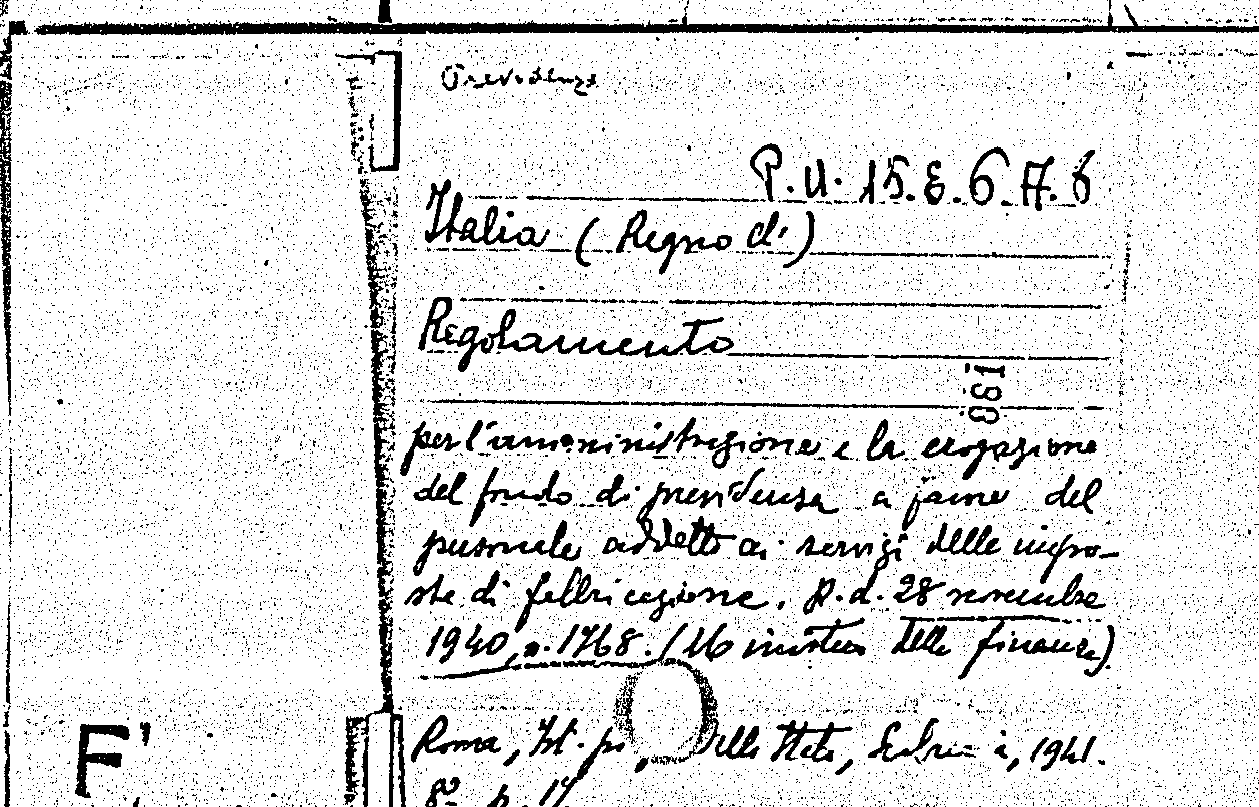 Previdenza
P.U. 15.E.6.A.6
Italia (Regno di)
Regolamento
881
per l'amministrazione e la erogazione
del fondo di previdenza a favore del
personale addetto ai servizi delle impo-
ste di fabbricazione. R.d. 28 novembre
1940, n. 1768. (Ministero delle finanze).
Roma, Ist. dello Stato, Libreria, 1941.
8º p. 17
F'